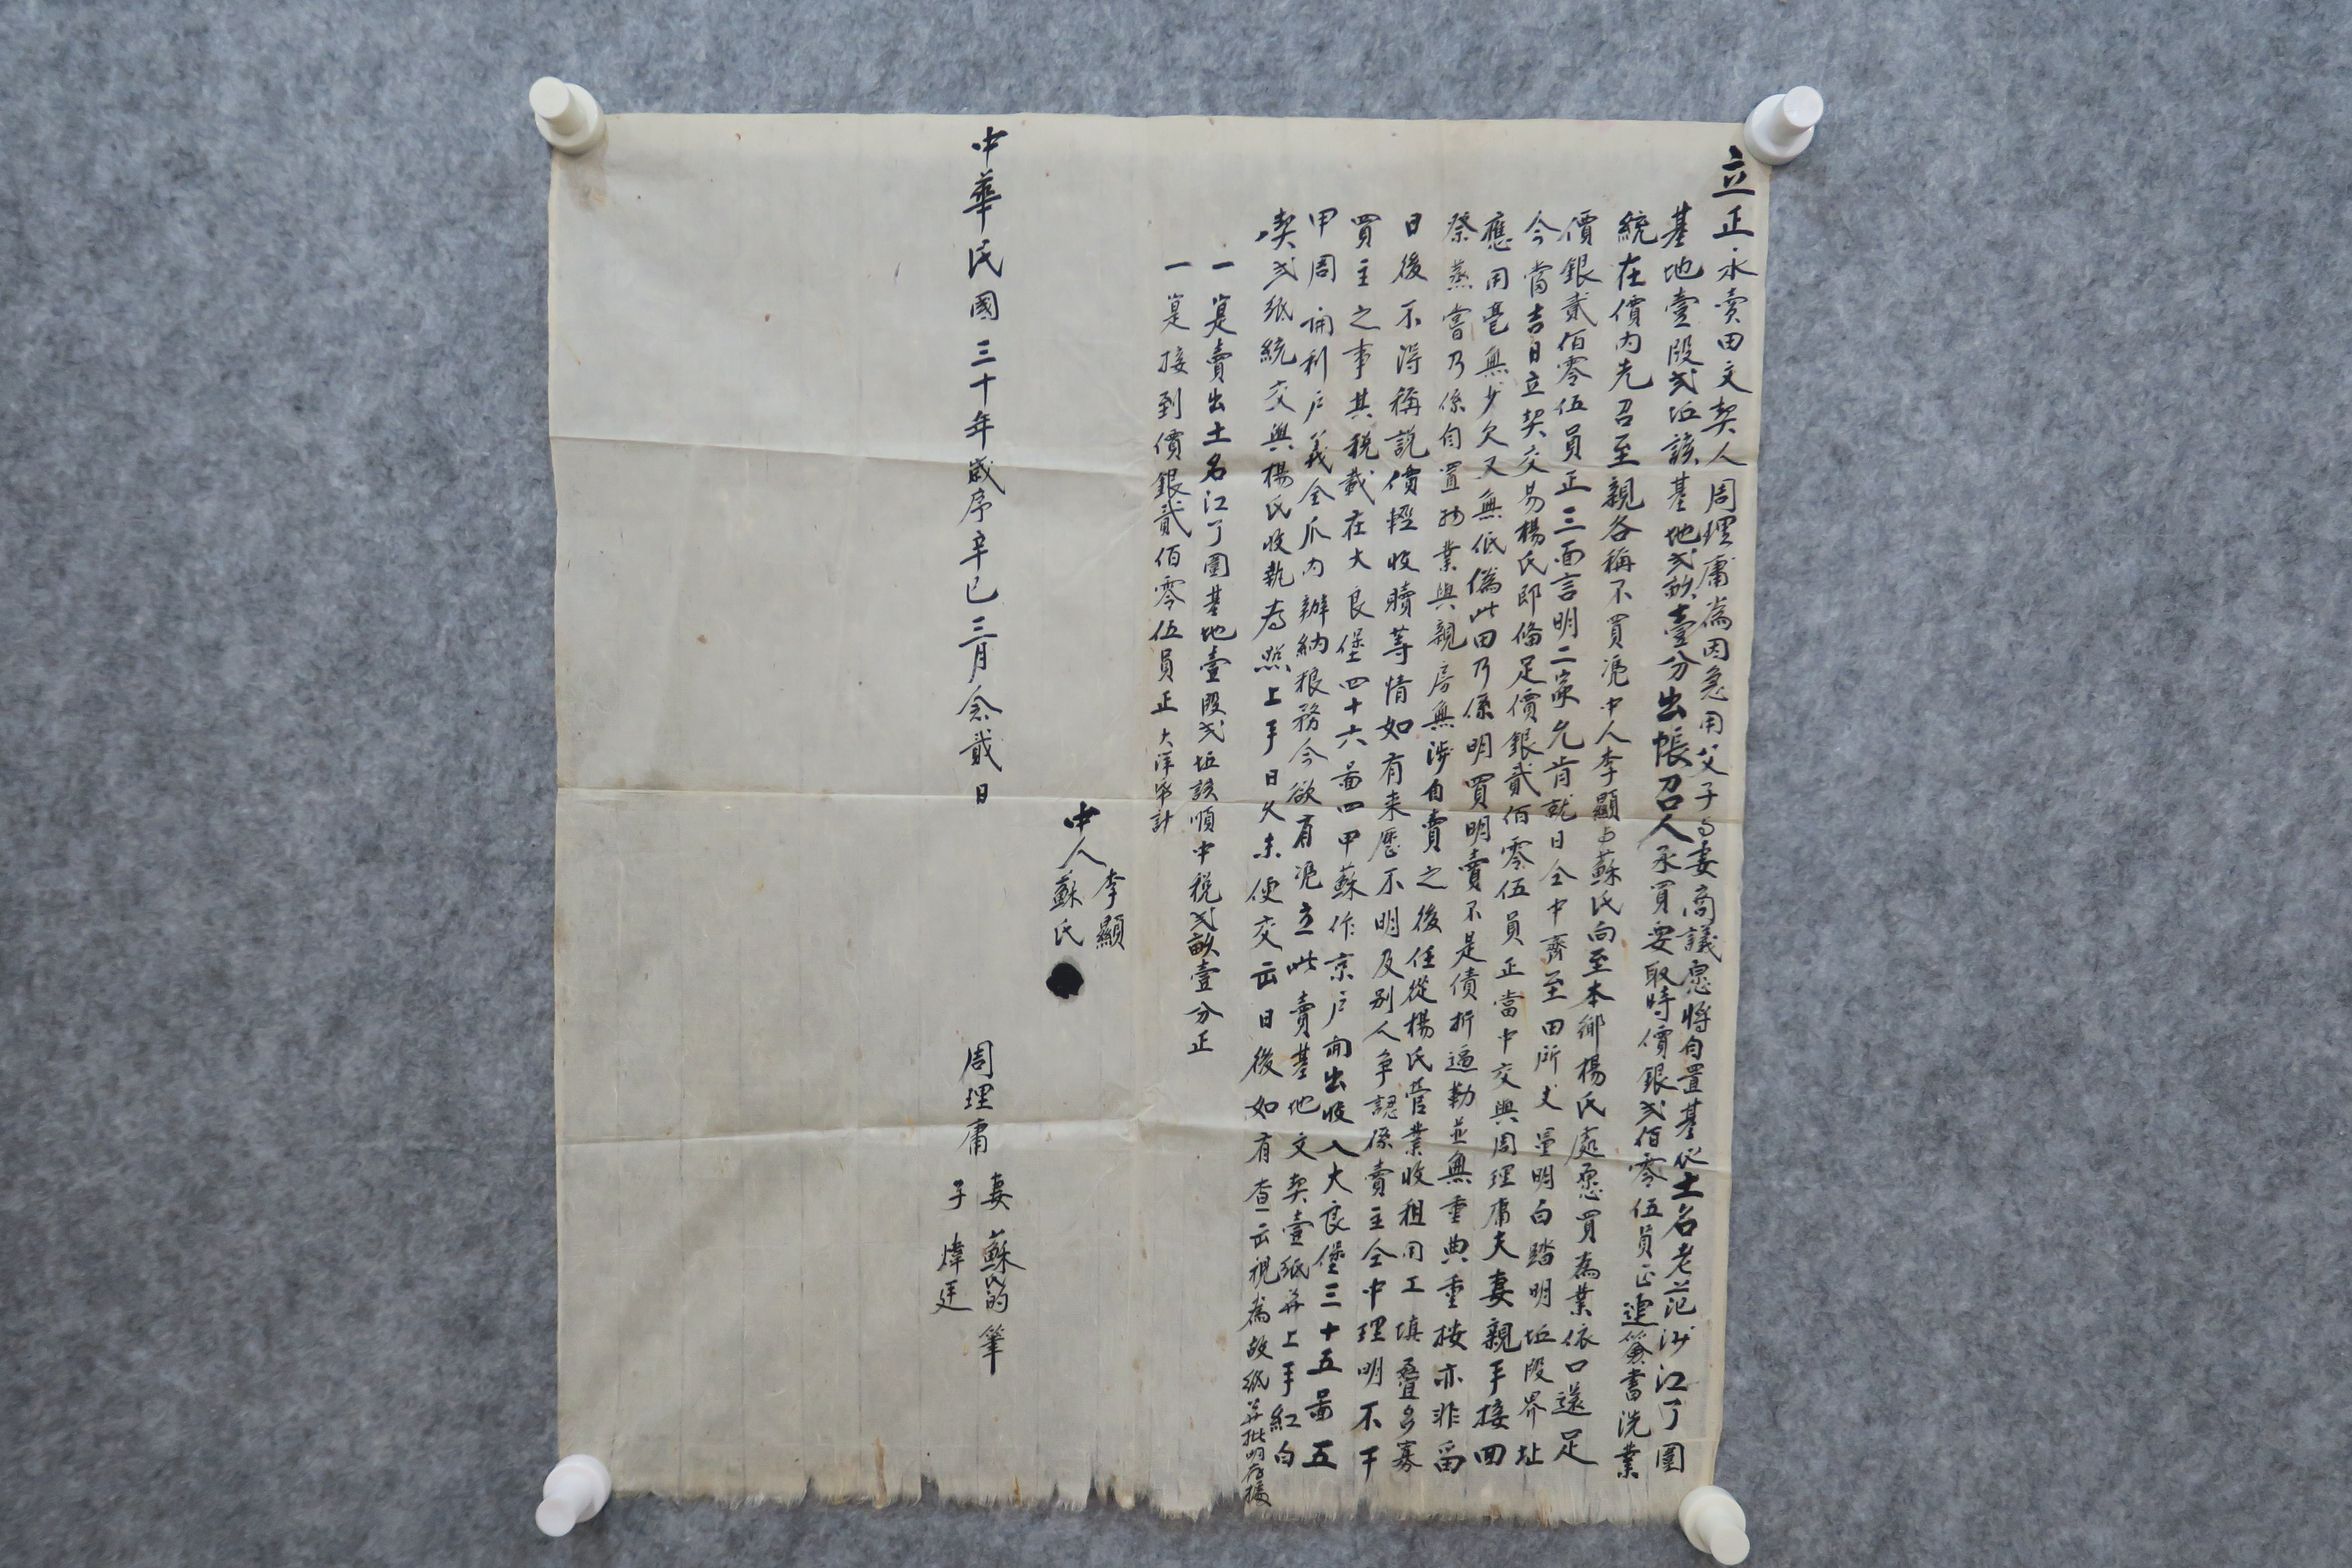 立正永賣田文契人周理庸為因急用父子与妻商議愿將自置基伦土名老范沙江丫圍
基地壹段弍坵該基地弍畝壹分出帳召人承買要取時價銀弍佰零伍員正連簽書洗業
統在價内先召至親各稱不買凴中人李顯与蘇氏向至本鄉楊氏處愿買為業依口還足
價銀貳佰零伍員正三面言明二家允肯就日仝中齊至田所丈量明白踏明坵段界址
今當吉日立契交易楊氏即俻足價銀貳佰零伍員正當中交與周理庸夫妻親手接回
應用毫無少欠又無低偽此田乃係明買明賣不是債折逼勒並無重典重按亦非留
祭蒸嘗乃係自置物業與親房無涉自賣之後任從楊氏管業收租用工填叠多寡
日後不得稱説價輕收贖等情如有来歷不明及别人争認係賣主仝中理明不干
買主之事其税載在大良堡四十六啚四甲蘇作京户開出收入大良堡三十五啚五
甲周開利户義全爪内辦納粮務今欲有凴立此賣基地文契壹紙并上手紅白
契弍纸統交與楊氏收執為照上手日久未便交出日後如有查出視為故纸并批明存據
一寔賣出土名江丫圍基地壹段弍坵該順中税弍畝壹分正
一寔接到價銀貳佰零伍員正大洋希計
中人李顯
蘇氏
中華民國三十年歲序辛巳三月念貳日
周理庸
妻蘇氏的筆
子煒廷